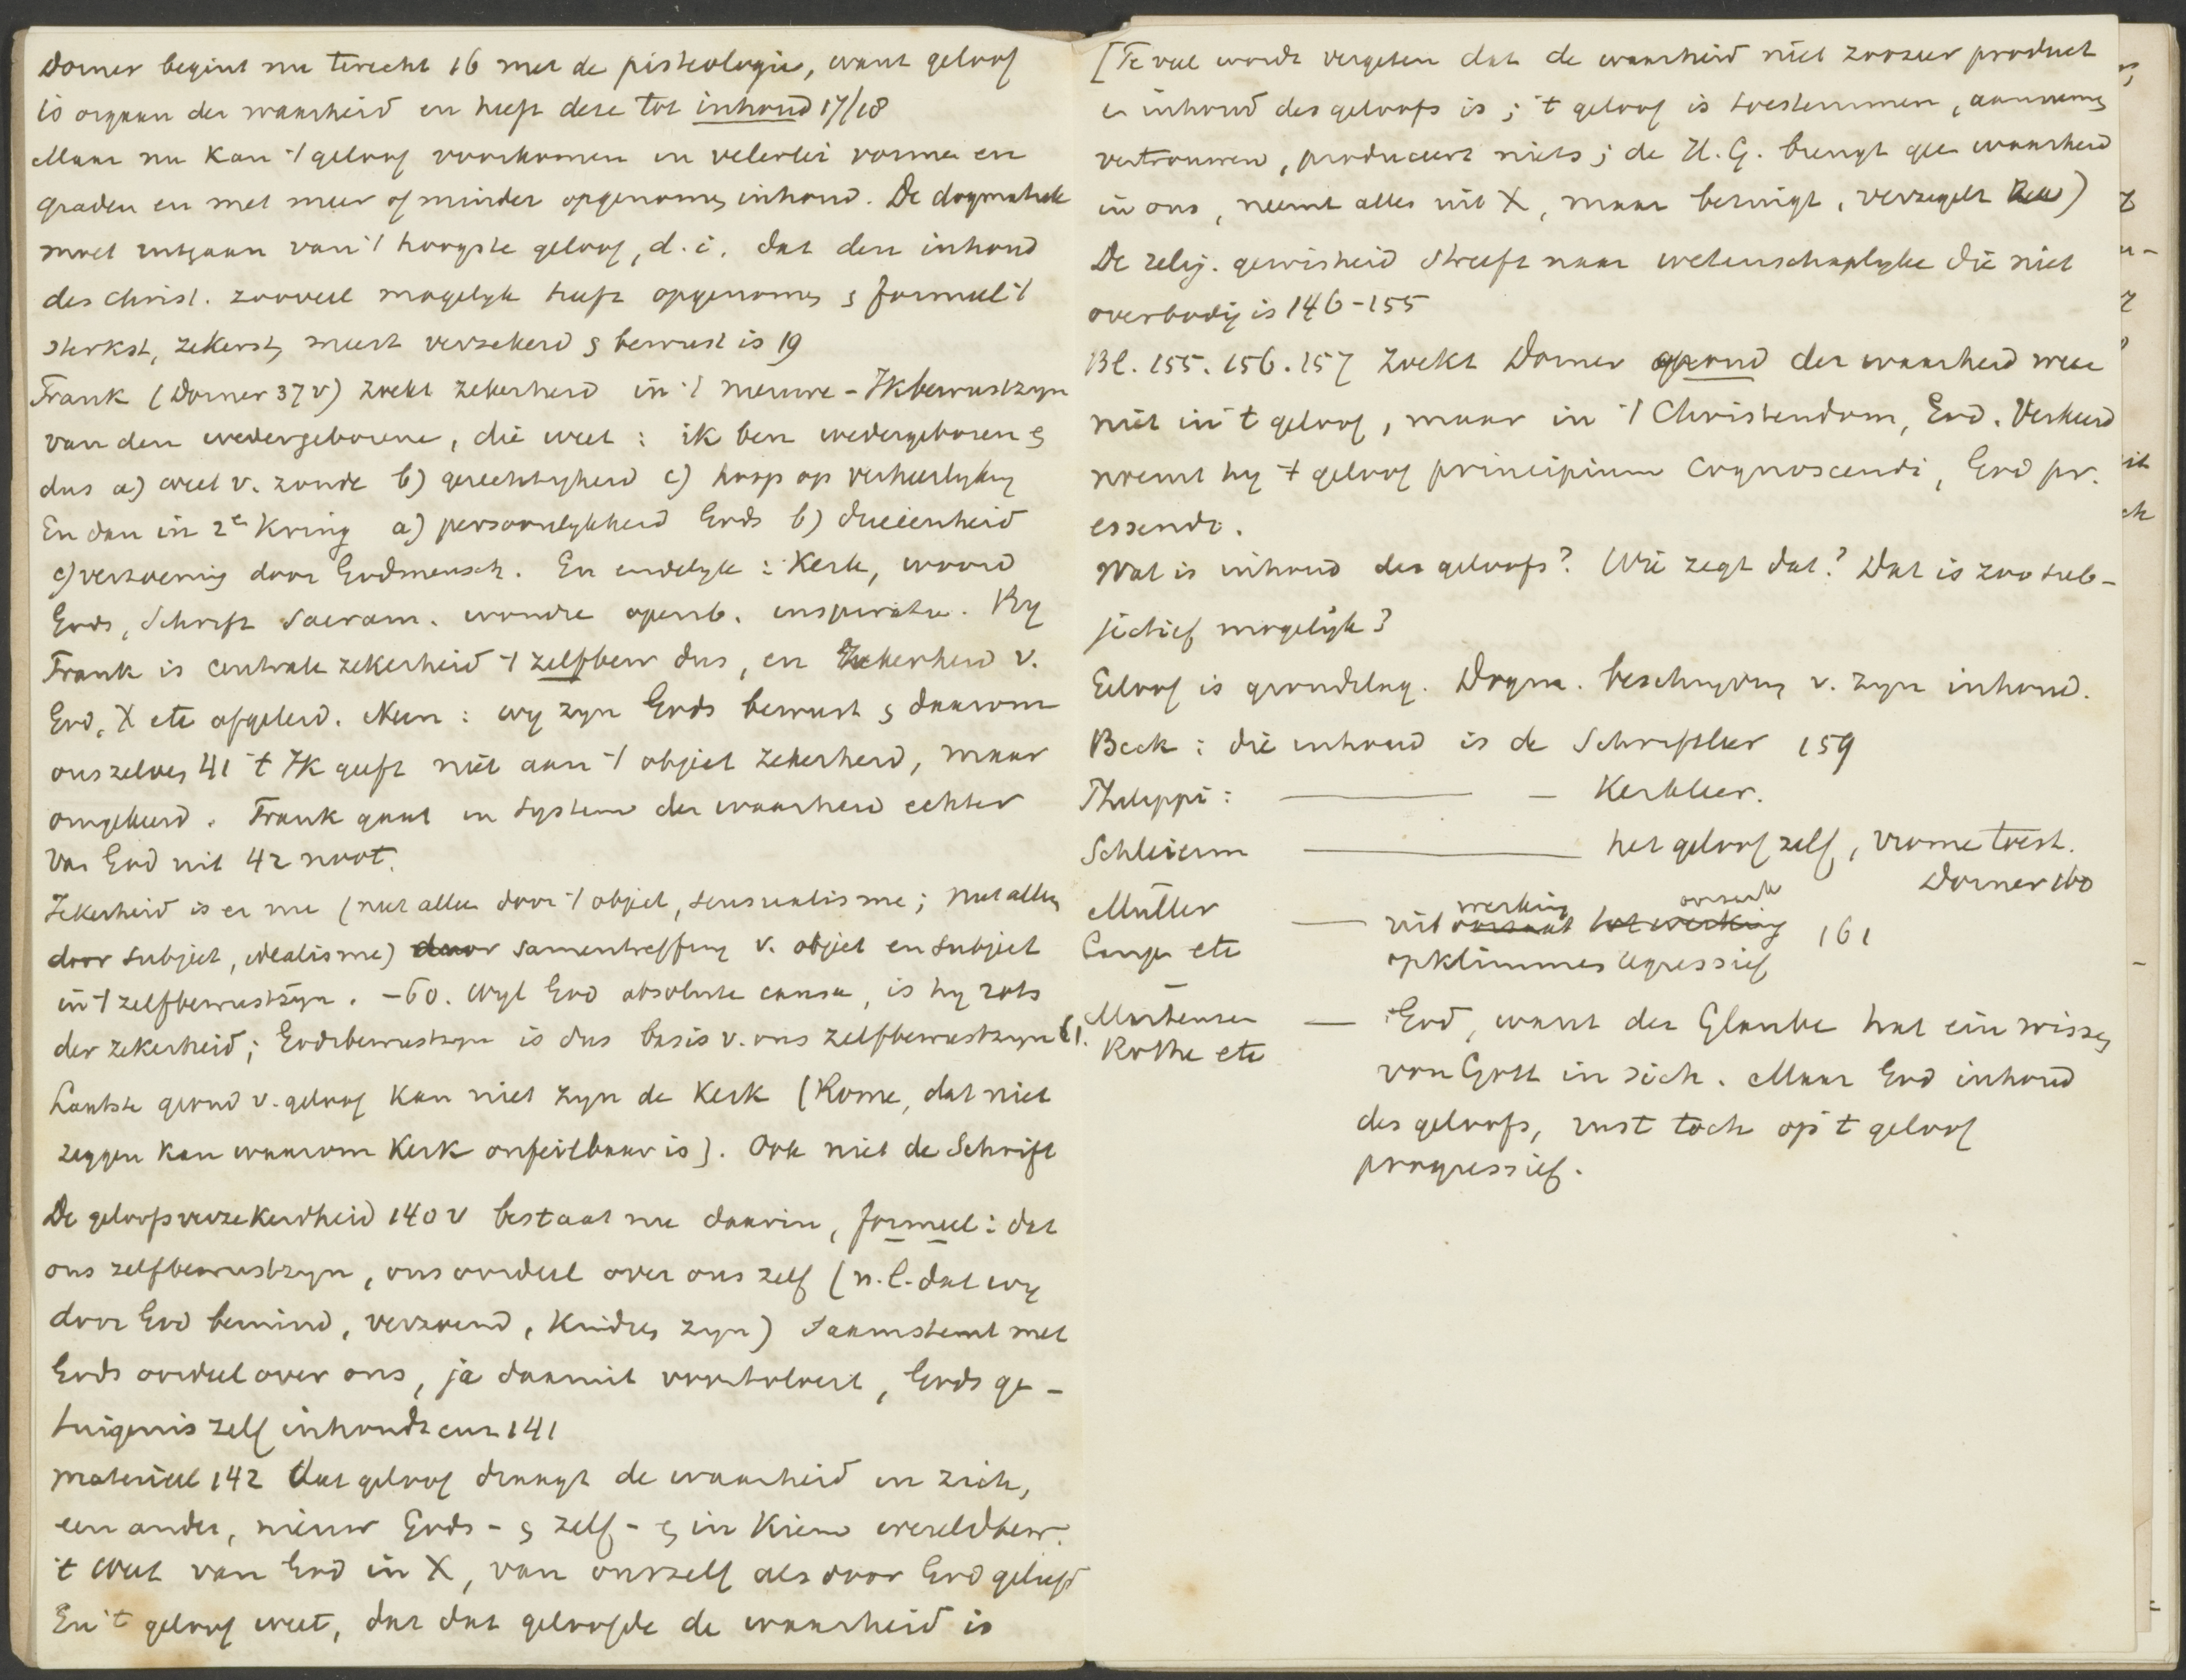 Dorner begint nu terecht 16 met de pisteologie, want geloof
is orgaan der waarheid en heeft deze tot inhoud 17/18
Maar nu kan 't geloof voorkomen in velerlei vormen en
graden en met meer of minder opgenomen inhoud. De dogmatiek
moet uitgaan van 't hoogste geloof, d.i. dat den inhoud
des Christ. zooveel mogelyk heeft opgenomen & formeel 't
sterkst, zekerst, meest verzekerd & bewust is 19
Frank (Dorner 37 v) zoekt zekerheid in 't nieuwe-Ikbewustzyn
van den wedergeborene, die weet: ik ben wedergeboren &
dus a) weet v. zonde b) gerechtigheid c) hoop op verheerlyking
En dan in 2e kring a) persoonlykheid Gods b) drieëenheid
c) verzoening door Godmensch. En eindelyk: Kerk, woord
Gods, Schrift Sacram. wondre openb. inspiratie. By
Frank is centrale zekerheid 't zelfbew dus, en zekerheid v.
God, X etc afgeleid. Neen: wy zyn Gods bewust & daarom
ons zelven 41 't Ik geeft niet aan 't object zekerheid, maar
omgekeerd. Frank gaat in System der waarheid echter
van God uit 42 noot.
Zekerheid is er nu (niet alleen door 't object, sensualisme; niet alleen
door subject, idealisme) door samentreffing v. object en subject
in 't zelfbewustzyn. -60. Wyl God absolute causa, is hy rots
der zekerheid; Godsbewustzyn is dus basis v. ons zelfbewustzyn 61.
Laatste grond v. geloof kan niet zyn de Kerk (Rome, dat niet
zeggen kan waarom Kerk onfeilbaar is). Ook niet de Schrift
De geloofsverzekerdheid 140 v bestaat nu daarin, formeel: dat
ons zelfbewustzyn, ons oordeel over ons zelf (n.l. dat wy
door God bemind, verzoend, kindren zyn) saamstemt met
Gods oordeel over ons, ja daaruit voortvloeit, Gods ge-
tuigenis zelf inhoudt enz 141
materieel 142 dat geloof draagt de waarheid in zich,
een ander, nieuw Gods- & zelf- & in kiem wereldbew.
't weet van God in X, van onszelf als door God geliefd
En 't geloof weet, dat dat geloofde de waarheid is
[Te veel wordt vergeten dat de waarheid niet zoozeer product
en inhoud des geloofs is; 't geloof is toestemmen, aannemen,
vertrouwen, produceert niets; de H.G. brengt geen waarheid
in ons, neemt alles uit X, maar betuigt, verzegelt)
De relig. gewisheid streeft naar wetenschaplyke die niet
overbodig is 146-155
Bl. 155. 156. 157 zoekt Dorner grond der waarheid weer
niet in 't geloof, maar in 't Christendom, God. Verkeerd
noemt hy 't geloof principium cognoscendi, God pr.
essendi.
Wat is inhoud des geloofs? Wie zegt dat? Dat is zoo sub-
jectief mogelijk?
Geloof is grondslag. Dogm. beschryving v. zyn inhoud.
Beck: die inhoud is de Schriftleer 159
Philippi: ——— — Kerkleer.
Schleierm ——— het geloof zelf, vrome toest.
Dorner 160
Müller — uit werking oorzaak 161
Lange etc opklimmen regressief
Martensen — God, want der Glaube hat ein wissen
Rothe etc von Gott in sich. Maar God inhoud
des geloofs, rust toch op 't geloof
progressief.